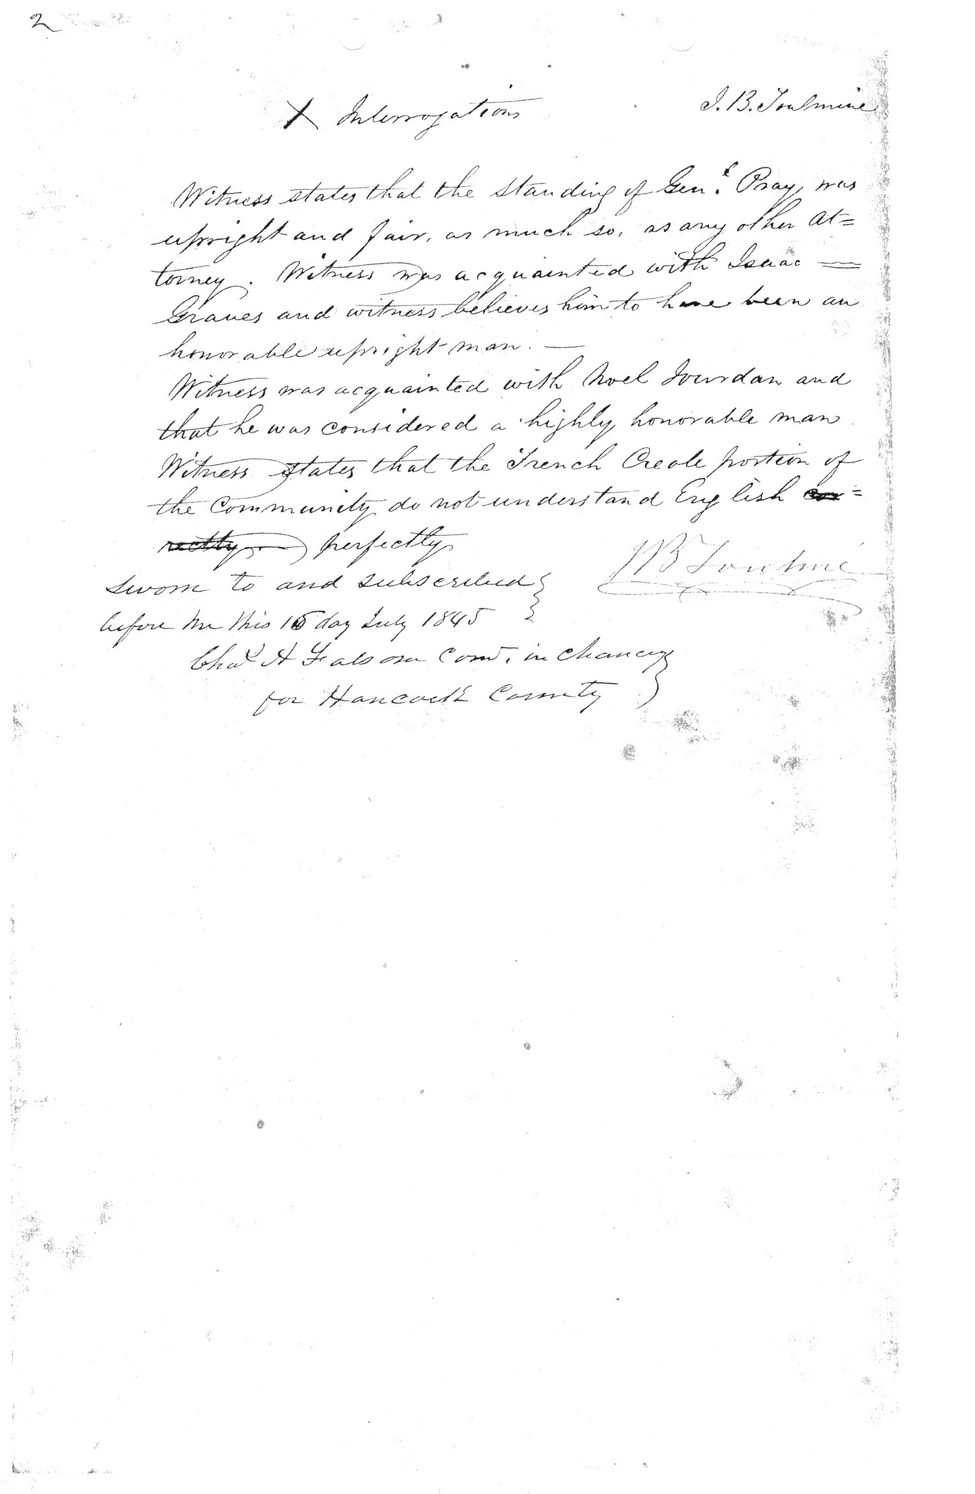 2
X Interrogations
J. B. Toulmine
Witness states that the standing of Genl. Pray, was
upright and fair, as much so, as any other At=
torney. Witness was acquainted with Isaac
Graves and witness believes him to have been an
honorable upright man. —
Witness was acquainted with Noel Jourdan and
that he was considered a highly honorable man
Witness states that the French Creole portion of
the Community do not understand English cor=
rectly perfectly
JB Toulmé
Sworn to and subscribed
before me this 15 day July 1845
Chas A Folsom Com. in chancery
for Hancock County